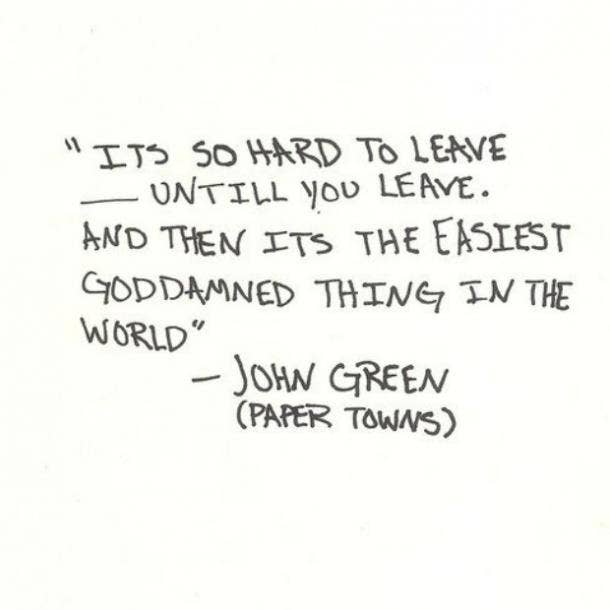 "ITS SO HARD TO LEAVE
— UNTILL YOU LEAVE.
AND THEN ITS THE EASIEST
GODDAMNED THING IN THE
WORLD"
– JOHN GREEN
(PAPER TOWNS)